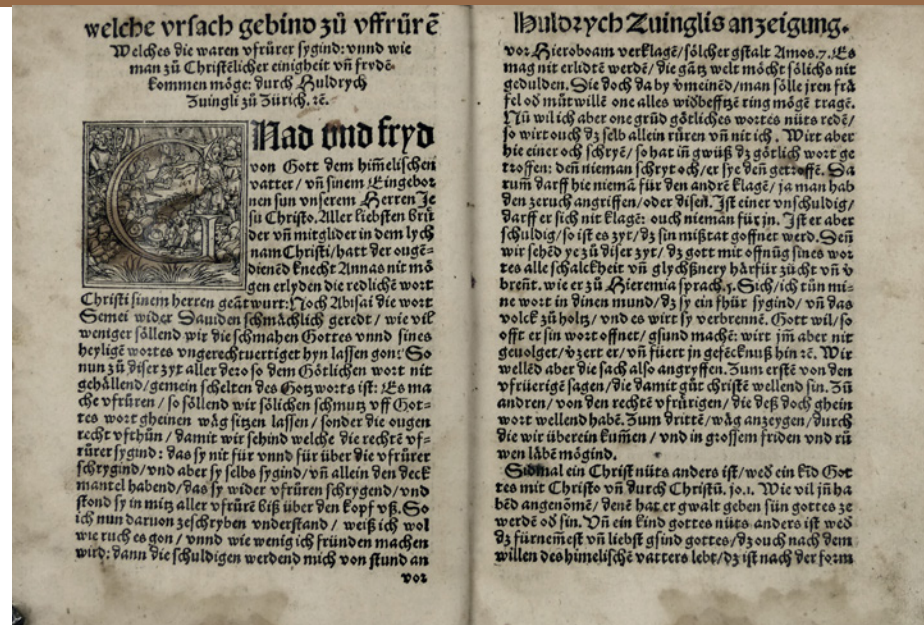 welche vrsach gebind zů vffrůrē
Welches die waren vfrůrer sygind: vnnd wie
man zů Christēlicher einigheit vñ frydē-
kommen mőge: durch Huldrych
Zuingli zů Zürich. ⁊c.
Gnad vnd fryd
von Gott dem him̃elischen
vatter / vñ sinem Eingebor
nen sun vnserem Herren Je
su Christo. Aller liebsten brů
der vñ mitglider in dem lych
nam Christi / hatt der ougē-
dienēd knecht Annas nit mő
gen erlyden die redlichē wort
Christi sinem herren geātwurt: Noch Abisai die wort
Semei wider Dauiden schmåchlich geredt / wie vil
weniger sőllend wir die schmahen Gottes vnnd sines
heyligē wortes vngerechtuertiget hyn lassen gon: So
nun zů diser zyt aller dero so dem Gőtlichen wort nit
gehållend / gemein schelten des Gotzworts ist: Es ma
che vfrůren / so sőllend wir sőlichen schmutz vff Got-
tes wort gheinen wåg sitzen lassen / sonder die ougen
recht vfthůn / damit wir sehind welche die rechtē vf-
rürer sygind: das sy nit für vnnd für über die vfrürer
schrygind / vnd aber sy selbs sygind / vñ allein den deck
mantel habend / das sy wider vfrůren schrygend / vnd
stond sy in mitz aller vfrůrē biß über den kopf vß. So
ich nun daruon zeschryben vnderstand / weiß ich wol
wie ruch es gon / vnnd wie wenig ich fründen machen
wird: dann die schuldigen werdend mich von stund an
vor
Huldrych Zuinglis anzeigung.
vor Hieroboam verklagē / sőlcher gstalt Amos.7. Es
mag nit erlidtē werdē / die gātz welt mőcht sőlichs nit
gedulden. Sie doch da by vmeinēd / man sőlle jren frå
fel od můtwillē one alles widbefftzē ring mőgē tragē.
Nů wil ich aber one grūd gőtliches wortes nüts redē /
so wirt ouch dz selb allein růren vñ nit ich. Wirt aber
hie einer och schryē / so hat in gwüß dz gőtlich wort ge
troffen: deñ nieman schryt och / er sye deñ getroffē. Da
rum̃ darff hie niemā für den andrē klagē / ja man hab
den zeruch angriffen / oder disen. Ist einer vnschuldig /
darff er sich nit klagē: ouch nieman für jn. Ist er aber
schuldig / so ist es zyt / dz sin mißtat goffnet werd. Deñ
wir sehēd ye zů diser zyt / dz gott mit offnūg sines wor
tes alle schalckheit vñ glychßnery hårfür zücht vñ v
breñt. wie er zů Hieremia sprach.5. Sich / ich tůn mi-
ne wort in dinen mund / dz sy ein fhür sygind / vñ das
volck zů holtz / vnd es wirt sy verbrennē. Gott wil / so
offt er sin wort offnet / gsund machē: wirt jm̃ aber nit
geuolget / vzert er / vñ fůert jn gefēcknuß hin ⁊c. Wir
wellēd aber die sach also angryffen. Zum erstē von den
vfrüerigē sagen / die damit gůt christē wellend sin. Zů
andren / von den rechtē vfrürigen / die deß doch ghein
wort wellend habē. Zum drittē / wåg anzeygen / durch
die wir überein kum̃en / vnd in grossem friden vnd rů
wen låbē mőgind.
Sidmal ein Christ nüts anders ist / wed ein kīd Got
tes mit Christo vñ durch Christū. jo.1. Wie vil jñ ha
bēd angenōmē / denē hat er gwalt geben sün gottes ze
werdē od sin. Vñ ein kind gottes nüts anders ist wed
dz fürnem̃est vñ liebst gsind gottes / dz ouch nach dem
willen des himelischē vatters lebt / dz ist nach der form